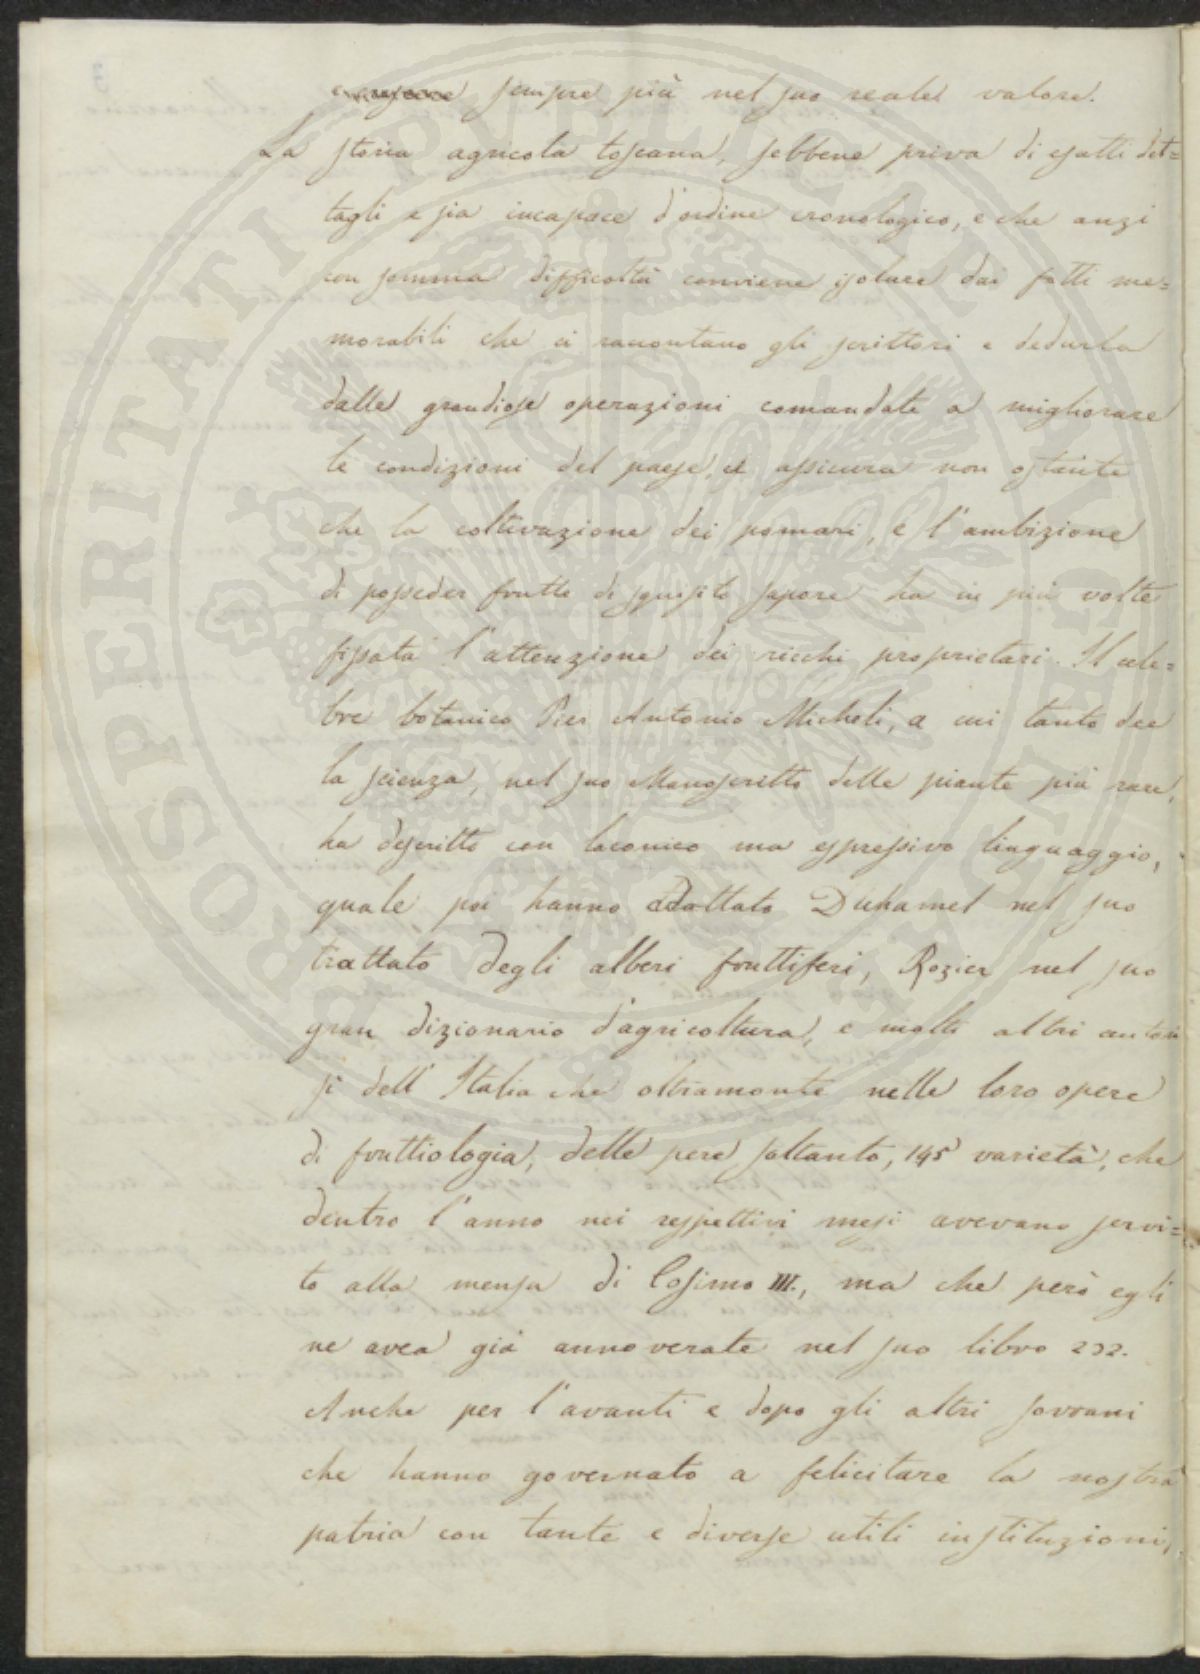 sempre più nel suo reale valore.
La storia agricola toscana, sebbene priva di esatti det=
tagli e sia incapace d'ordine cronologico, e che anzi
con somma difficoltà conviene isolare dai fatti me=
morabili che ci raccontano gli scrittori e dedurla
dalle grandiose operazioni comandate a migliorare
le condizioni del paese, ci assicura non ostante
che la coltivazione dei pomari, e l'ambizione
di posseder frutte di squisito sapore ha in più volte
fissata l'attenzione dei ricchi proprietari. Il cele=
bre botanico Pier Antonio Micheli, a cui tanto dee
la scienza, nel suo Manoscritto delle piante più rare,
ha descritto con laconico ma espressivo linguaggio,
quale poi hanno addottato Duhamel nel suo
trattato degli alberi fruttiferi, Rozier nel suo
gran dizionario d'agricoltura, e molti altri autori
sì dell'Italia che oltramonte nelle loro opere
di fruttiologia, delle pere soltanto, 195 varietà, che
dentro l'anno nei respettivi mesi avevano servi=
to alla mensa di Cosimo III., ma che però egli
ne avea già annoverate nel suo libro 232.
Anche per l'avanti e dopo gli altri sovrani
che hanno governato a felicitare la nostra
patria con tante e diverse utili instituzioni,
PROSPERITATI PVBLICAE AVGENDAE